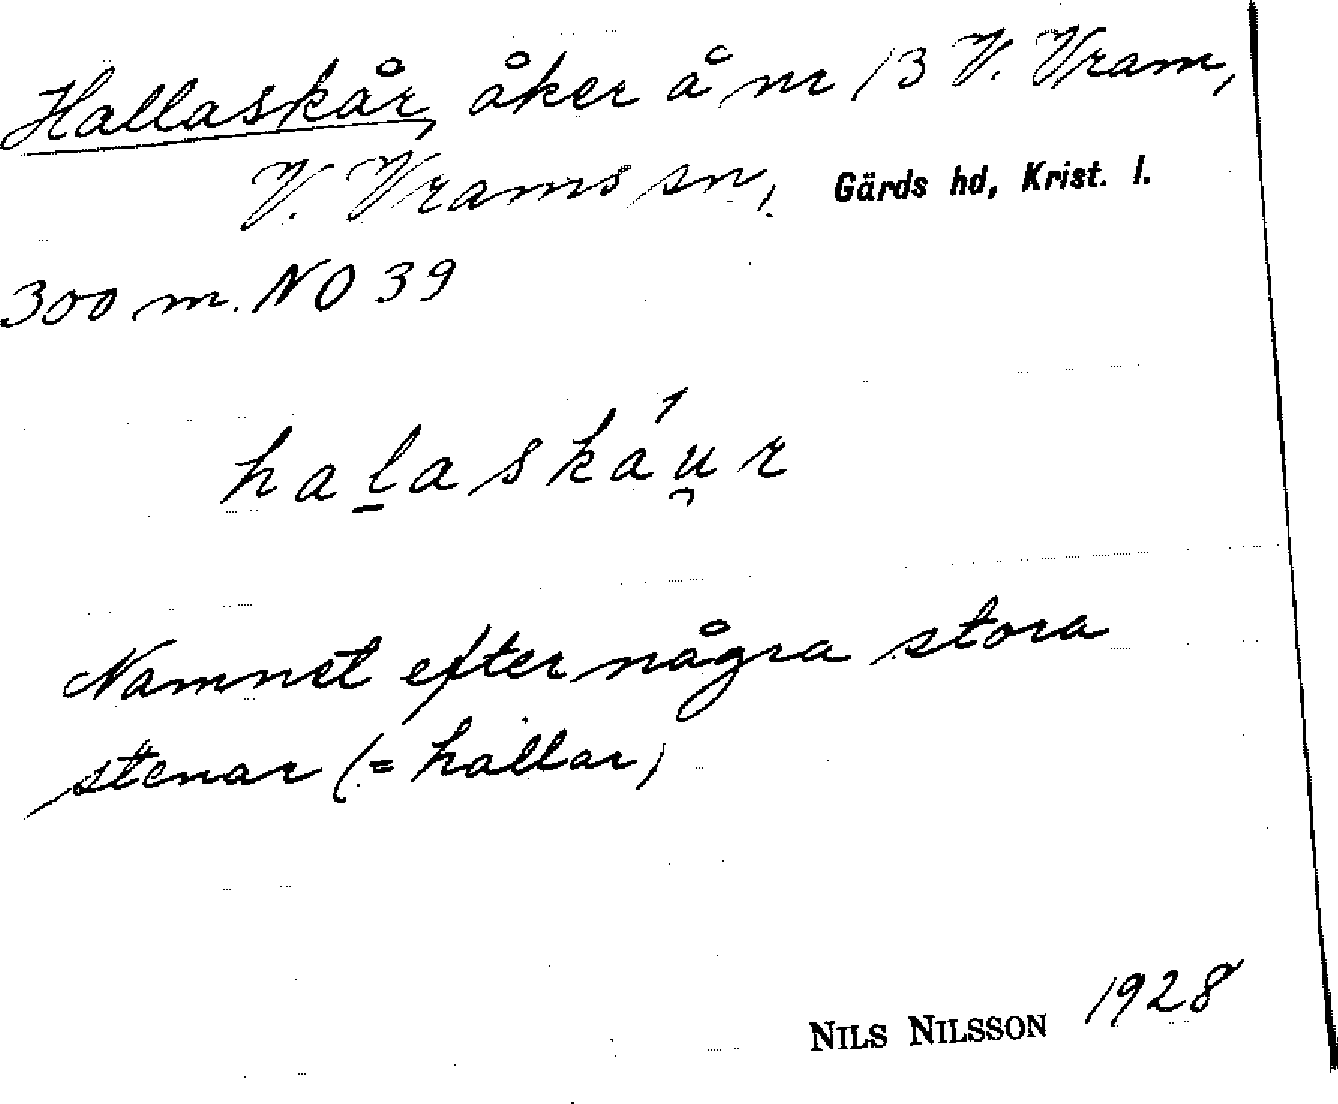 Hallaskår, åker å nr 13 V. Vram,
V. Vrams sn, Gärds hd, Krist. l.
300 m. NO 39
hala̱skáu̯r
Namnet efter några stora
stenar (= hallar)
NILS NILSSON 1928